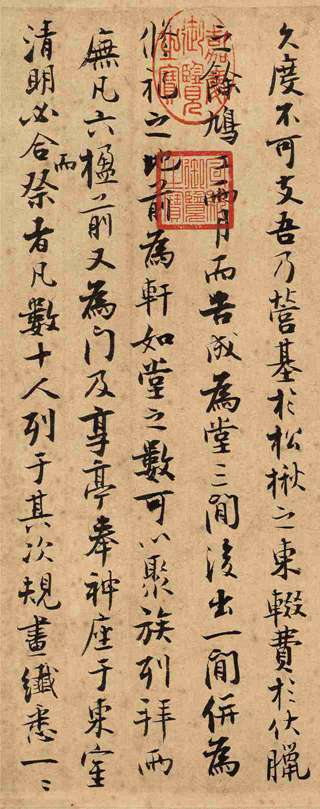 久度不可支吾乃營基於松楸之東輟費於伏臘
之餘鳩工兩月而告成為堂三間後出一間併為
修祀之地前為軒如堂之數可以聚族列拜兩
廡凡六楹前又為門及享亭奉神座于東室
清明必合祭而者凡數十人列于其次規畫纖悉一々
嘉慶御覽之寶